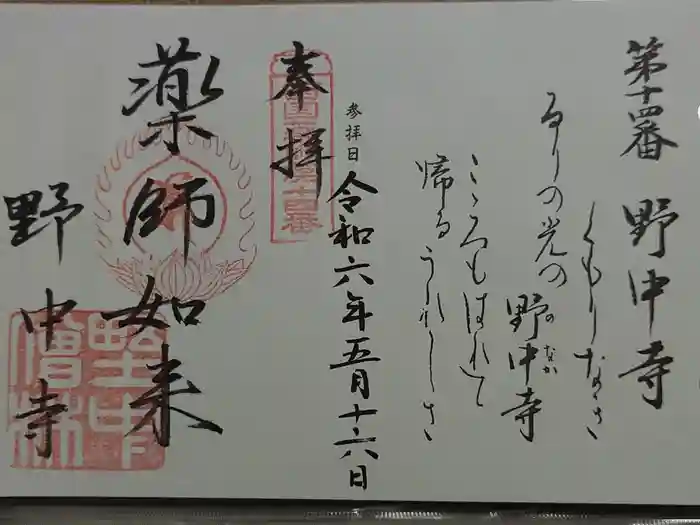 第十四番 野中寺
くもりなき
るりの光の 野中寺
のなか
こゝろもはれて
帰るうれしさ
参拝日 令和六年五月十六日
奉拝
薬師如来
野中寺